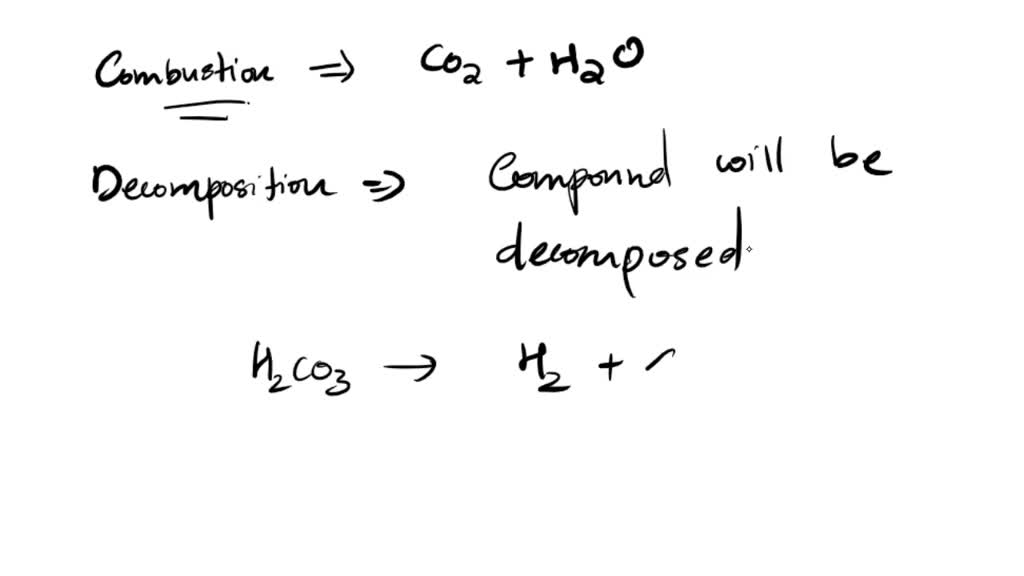 Combustion ⇒ CO₂ + H₂O
Decomposition ⇒ Compound will be
decomposed
H₂CO₃ → H₂ +